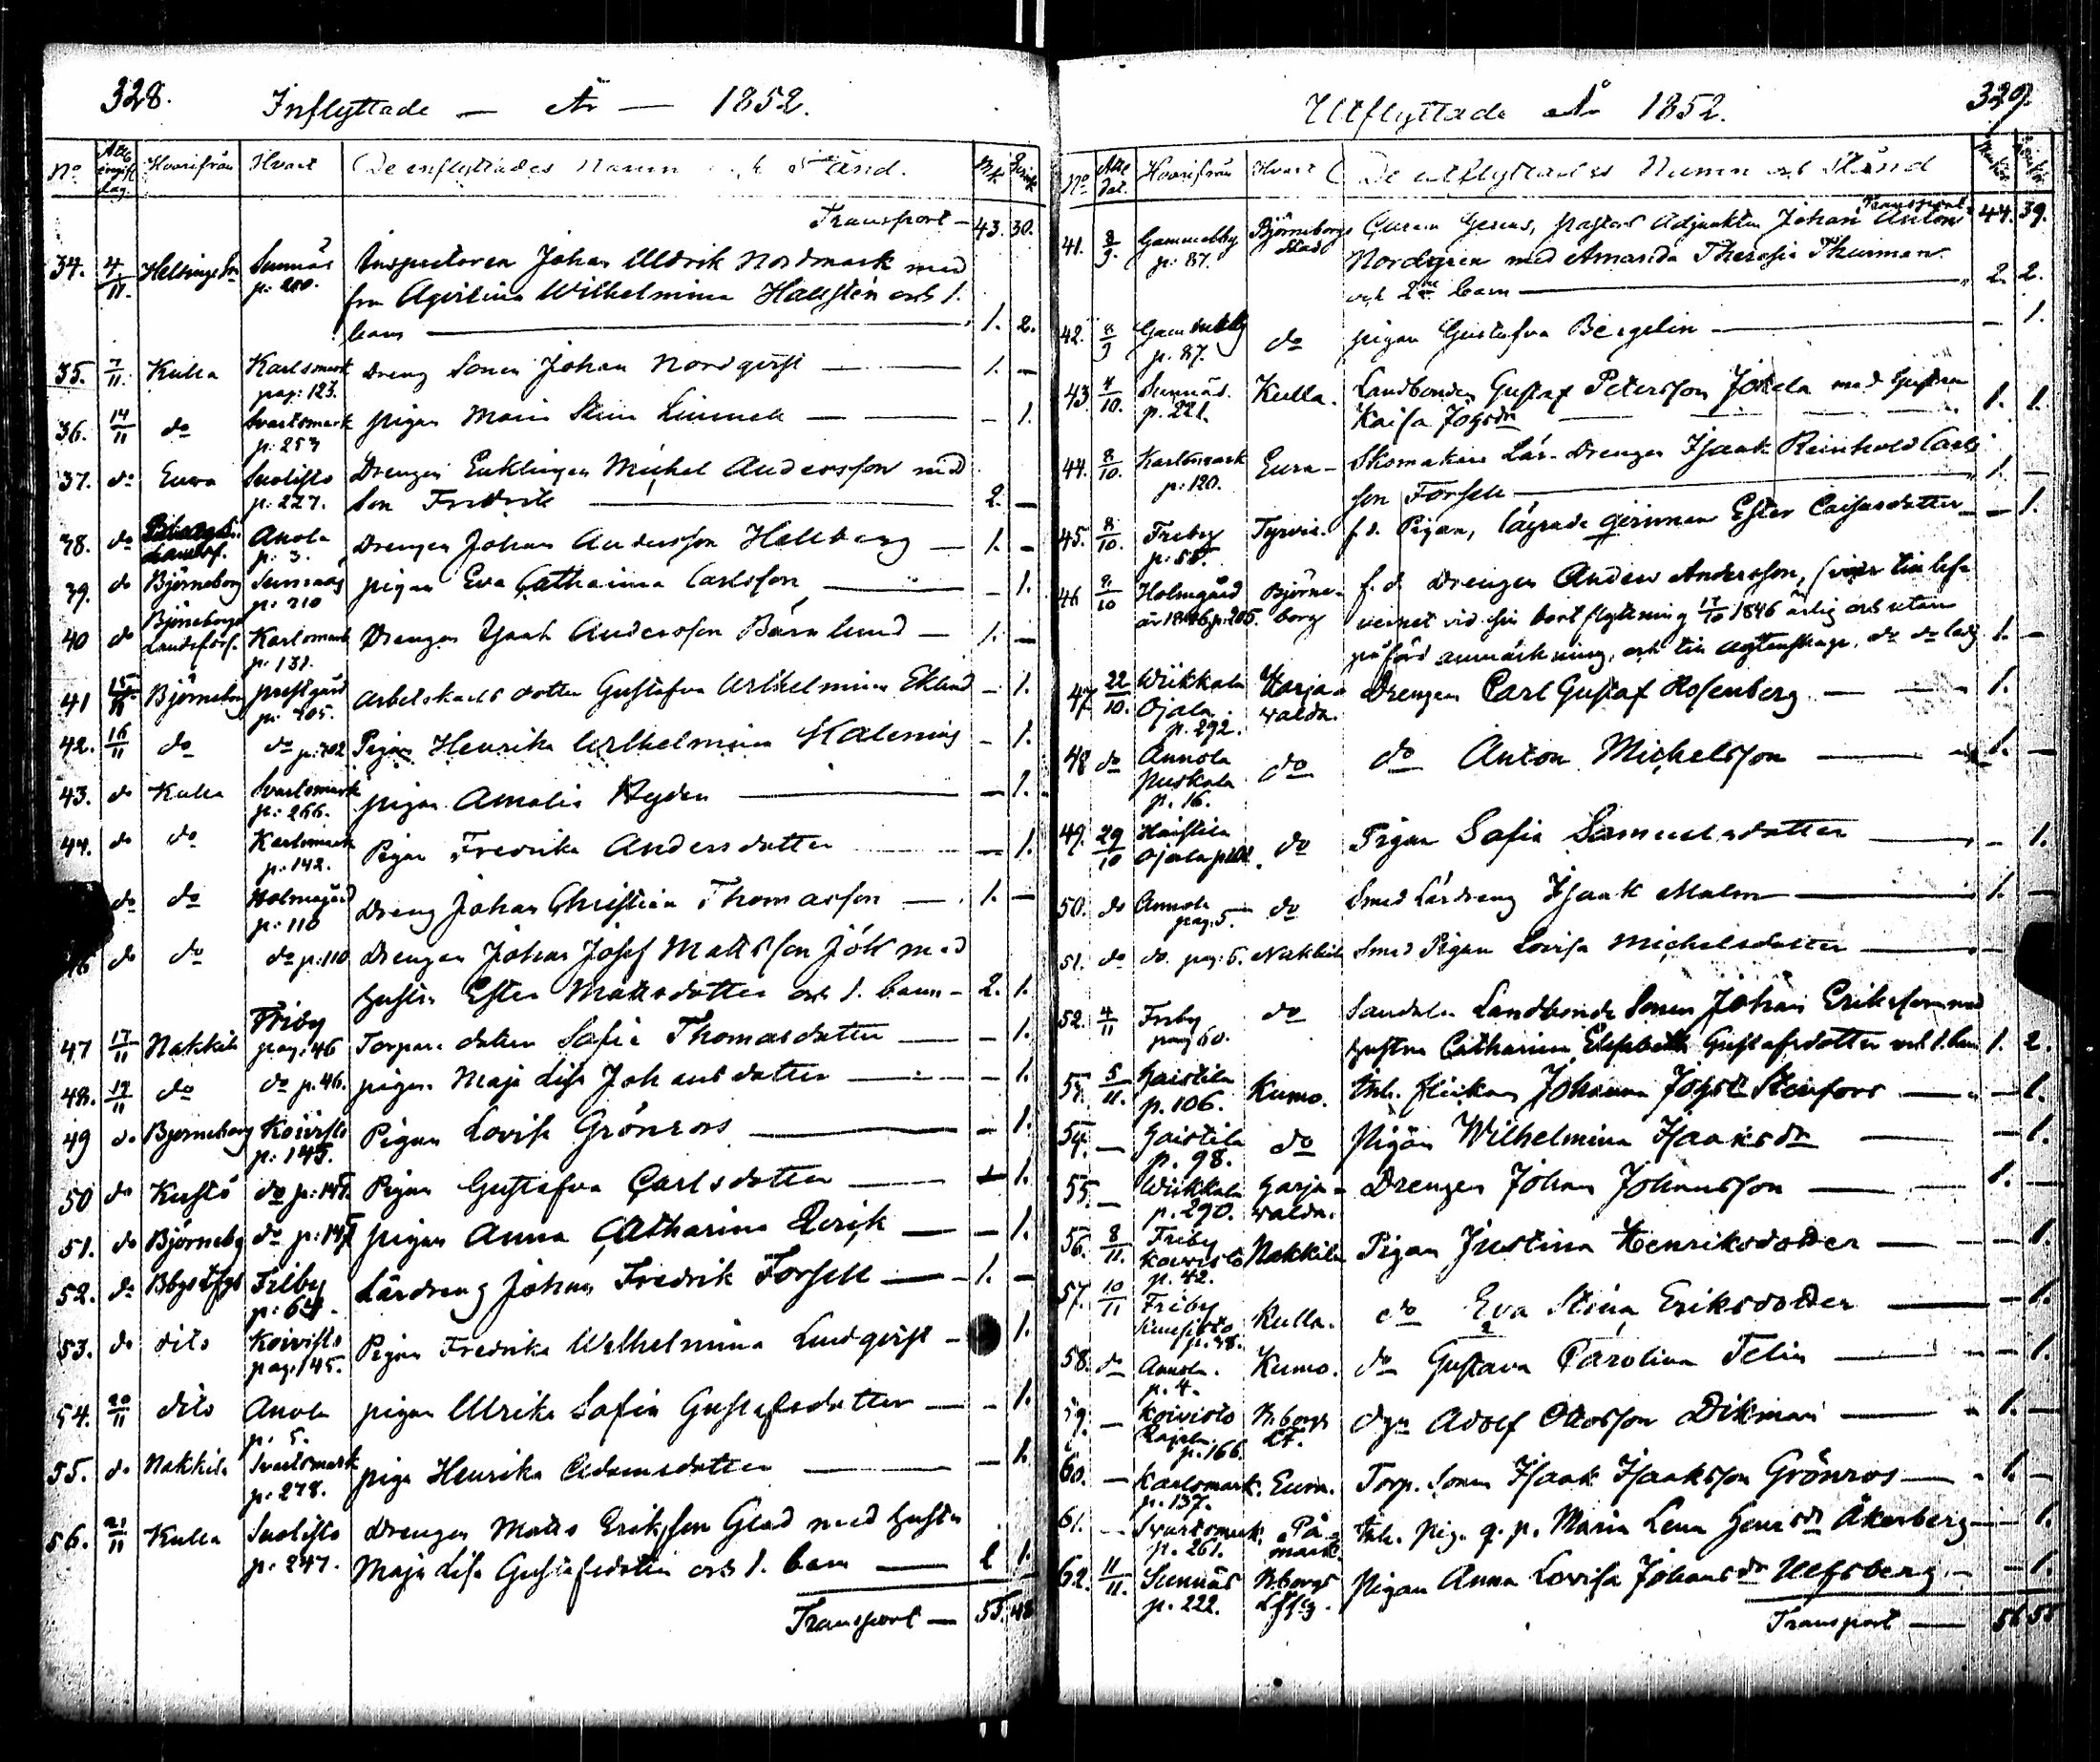 328.
Inflyttade — År — 1852.
No Hvarifrån Hvart De inflyttades Namn och Stånd.
Transport — 43. 30.
34. 4/11. Sunnäs p: 210. Inspectoren Johan Uldrik Nordmark med
fru Wilhelmina Hallstén och 1.
barn — 1. 2.
35. 7/11. Kulla Karlsmark pag: 123. Dreng Sonen Johan Nordqvist — 1. —
36. 14/11 do Svartsmark p: 253 pigan Maria Stina — — 1.
37. do Eura Suolisto p: 227. Drengen Enklingen Michel Andersson med
Son Fredrik — 2. —
38. do Anola p: 3. Drengen Johan Andersson Hallberg — 1. —
39. do Björneborg Sunnäs p: 210 pigan Eva Catharina Carlsson — — 1.
40 do Björneborgs Landsförs. Karlsmark p: 131. Drengen Isaak Andersson Björnlund — 1. —
41 15/11 Björneborg prestgård p: 305. arbetskarls dotter Gustafva Wilhelmina Eklund — 1.
42. 16/11 do do p: 302 Pigan Henrika Wilhelmina — 1.
43. do Kulla Svartsmark p: 266. pigan Amalia Hyden — — 1.
44. do do Karlsmark p: 142. Pigan Fredrika Andersdotter — 1.
do do Holmgård p: 110 Dreng Johan Christian Thomasson — 1. —
46 do do do p: 110 Drengen Johan Josef Mattsson Jók med
hustru Ester Mattsdotter och 1. barn — 2. 1.
47 17/11 Nakkila Friby pag: 46 Torpare dotter Sofia Thomasdotter — — 1.
48. 17/11 do do p. 46. pigan Maja Lisa Johansdotter — — 1.
49 do Björneborg Koivisto p: 145. Pigan Lovisa Grönroos — — 1.
50 do Kustö do p: 147. Pigan Gustafva Carlsdotter — — 1.
51. do Björnebg do p: 147 pigan Anna Catharina — — 1.
52. do Friby p: 64. Lärdreng Johan Fredrik Forsell — 1. —
53. do dito Koivisto pag: 145. Pigan Fredrika Wilhelmina Lindqvist — 1.
54. 20/11 dito Anola p. 5. pigan Ulrika Sofia Gustafsdotter — — 1.
55. do Nakkila Svartsmark p: 278. piga Henrika Adamsdotter — — 1.
56. 21/11 Kulla Suolisto p: 247. Drengen Matts Eriksson Glad med hustru
Maja Lisa Gustafsdotter och 1. barn — 1.
Transport — 55. 48
329.
Utflyttade År 1852.
No Hvarifrån Hvart De utflyttades Namn och Stånd
Transport 44. 39.
41. 8/9. Gammelby p: 87. Björneborgs Stad pastors Adjunkten Johan Anton
Nordgren med Amanda Theresia Thurman
och 2ne barn — 2. 2.
42. 8/9 p. 87. do pigan Gustafva Bergelin — — 1.
43. 4/10. Sunnäs p. 221. Kulla. Landbonden Gustaf Petersson Jokela med hustru
Kaisa Johsdr 1. 1.
44. 8/10. Karlsmark p: 120. Eura — Skomakare Lär-Drengen Isaak Reinhold Carls
son Forsell — 1. —
45. 8/10. Friby p: 58. Tyrvis. f.d. Pigan, lägrade qvinnan Ester Caisasdotter — — 1.
46 9/10 Holmgård år 1846 p: 205 Björneborg f. d. Drengen Anders Andersson,
vid sin bortflyttning 17/10 1846 ärlig och utan
påförd anmärkning, och till ägtenskap 1. —
47 22/10. Wiikkala Ojala. p. 292. Harjavalda. Drengen Carl Gustaf Rosenberg — 1.
48 do Annola Puskala p. 16. do do Anton Michelsson — 1. —
49. 29/10 Haistila Ojala do Pigan Sofia Samuelsdotter — — 1.
50. do Annola pag: 5 do Smed Lärdreng Isaak Malm — 1. —
51. do do. pag: 5. Nakkila Smed Pigan Lovisa Michelsdotter —
52. 4/11 Friby pag 60. do Landbonde Sonen Johan Eriksson med
hustru Catharina Elisabeth Gustafsdotter och 1. barn 1. 2.
53. 5/11. Haistila p. 106. Kumo. Inh. flickan Johanna Johsdr Stenfors — — 1.
54. — Haistila p. 98. do Pigan Wilhelmina Isaaksdr — 1.
55. — Wiikkala p. 290. Harjavalda. Drengen Johan Johansson — 1. —
56. 8/11. Friby Koivisto p. 42. Nakkila Pigan Justina Henriksdotter — — 1.
57. 10/11 Friby p. 48. Kulla. do Eva Stina Eriksdotter — — 1.
58. do Annola. p. 4. Kumo. do Gustava Carolina Felin — — 1.
59. — Koivisto p. 166. B.borgs Lf. dgn Adolf Ottosson Dikman — 1. —
60. — Karlsmark. p. 137. Eura. Torp. Sonen Isaak Isaaksson Grönroos — 1. —
61. — Svartsmark. p. 261. Påmark. Inh. Pig. q. p. Maria Lena Henrsdr Åkerberg — 1.
62. 11/11. Sunnäs p. 222. B.borgs Pigan Anna Lovisa Johansdr Ulfsberg — — 1.
Transport — 56 55